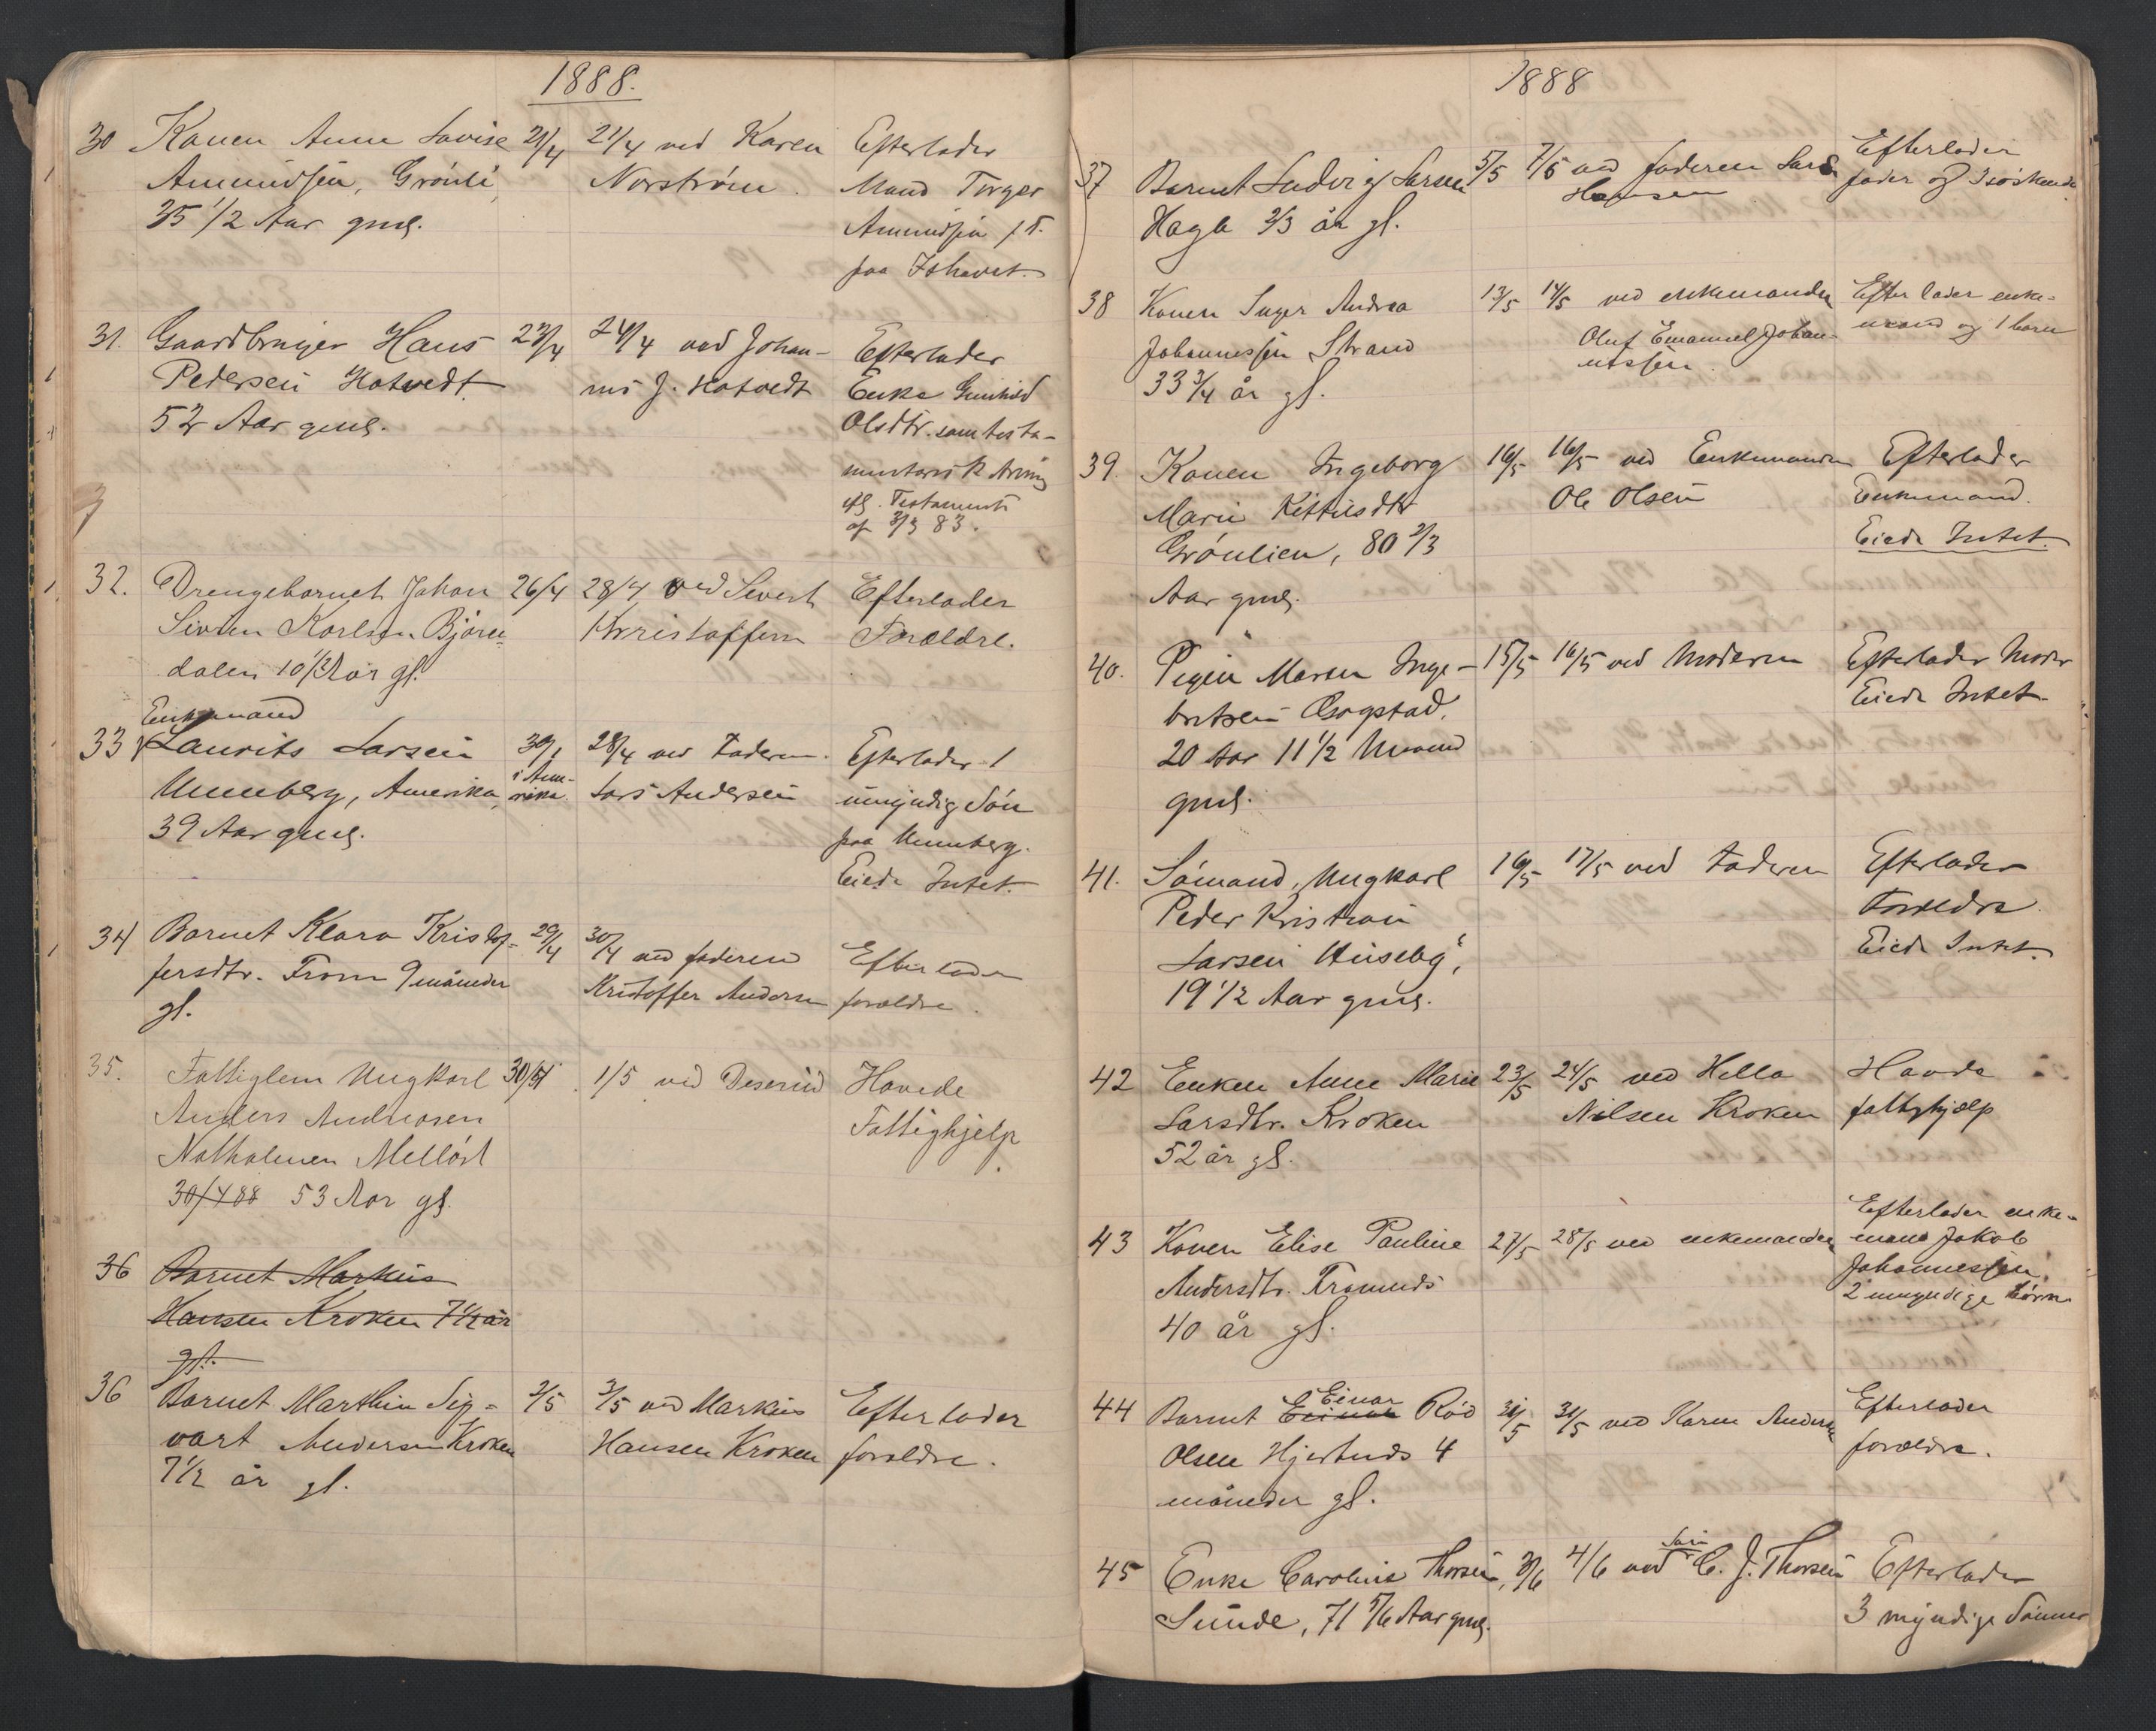 1888.
30 Konen Anne Lovise 21/4 21/4 ved Karen Efterlader
Amundsen, Grönli, Norström. Mand Torger
35 1/2 Aar gml. Amundsen p.t.
paa Ishavet.
31. Gaardbruger Hans 23/4 24/4 ved Johan- Efterlader
Pedersen Hotvedt nis J. Hotvedt Enke Gunhild
52 Aar gml. Olsdtr. som testa-
mentarisk Arving
efg. Testamente
af 3/3 83.
32. Drengebarnet Johan 26/4 28/4 ved Severt Efterlader
Karlsen Bjørn- Kristoffersen Forældre.
dalen 10 1/2 aar gl.
Enkemand
33 Laurits Larsen 30/1 28/4 ved Faderen Efterlader 1
i Ame-
Unneberg, Amerika, rika. Lars Andersen umyndig Sön
39 Aar gml. paa Unneberg.
Eiede Intet.
34 Barnet Klara Kristof- 29/4 30/4 ved faderen Efterlader
fersdtr. From 9 måneder Kristoffer Andersen forældre.
gl.
35. Fattiglem Ungkarl 30/4 1/5 ved Havde
Anders Andreasen Fattighjelp
Natholmen
30/4 88 53 Aar gl.
36 Barnet Markus
Hansen Kroken 7 1/2 år
gl.
36 Barnet Marthin Sig- 2/5 3/5 ved Markus Efterlader
vart Andersen Kroken Hansen Kroken forældre.
7 1/2 år gl.
1888
37 Barnet Ludvig Larsen 5/5 7/5 ved faderen Lars Efterlader
Haga 2/3 år gl. Hansen fader og søskende.
38 Konen Inger Andrea 13/5 14/5 ved enkemanden Efterlader enke-
Johannessen Strand Oluf Emanuel Johan- mand og 1 barn
33 3/4 år gl. nessen.
39. Konen Ingeborg 16/5 16/5 ved Enkemanden Efterlader
Marie Kittilsdtr Ole Olsen Enkemand.
Grönlien, 80 2/3 Eiede Intet.
Aar gml.
40. Pigen Maren Inge- 15/5 16/5 ved Moderen Efterlader Moder
britsen Gogstad. Eiede Intet.
20 Aar 11 1/2 Maaned
gml.
41. Sömand, Ungkarl 16/5 17/5 ved Faderen Efterlader
Peder Kristian Forældre.
Larsen Huseby, Eiede Intet.
19 1/2 Aar gml.
42 Enken Anne Marie 23/5 24/5 ved Hella Havde
Larsdtr. Kroken Nilsen Kroken fattighjælp
52 år gl.
43 Konen Elise Pauline 27/5 28/5 ved enkemanden Efterlader enke-
mand Jakob
Andersdtr. Framnæs Johannessen,
40 år gl. 2 umyndige børn
44 Barnet Einar Röd 31/5 31/5 ved Karen Andersen Efterlader
Olsen Hjertnæs 4 forældre.
måneder gl.
45 Enke Caroline Thorsen, 3/6 4/6 ved Sön C. J. Thorsen Efterlader
Sunde, 71 5/6 Aar gml. 3 myndige Sönner